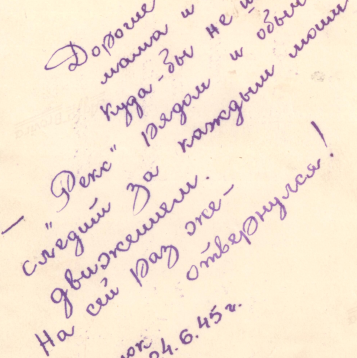 Дорогие
мама и
куда-бы не
"Рекс" рядом и
следит за каждым моим
движением.
На сей раз же-
отвернулся!
24.6.45 г.